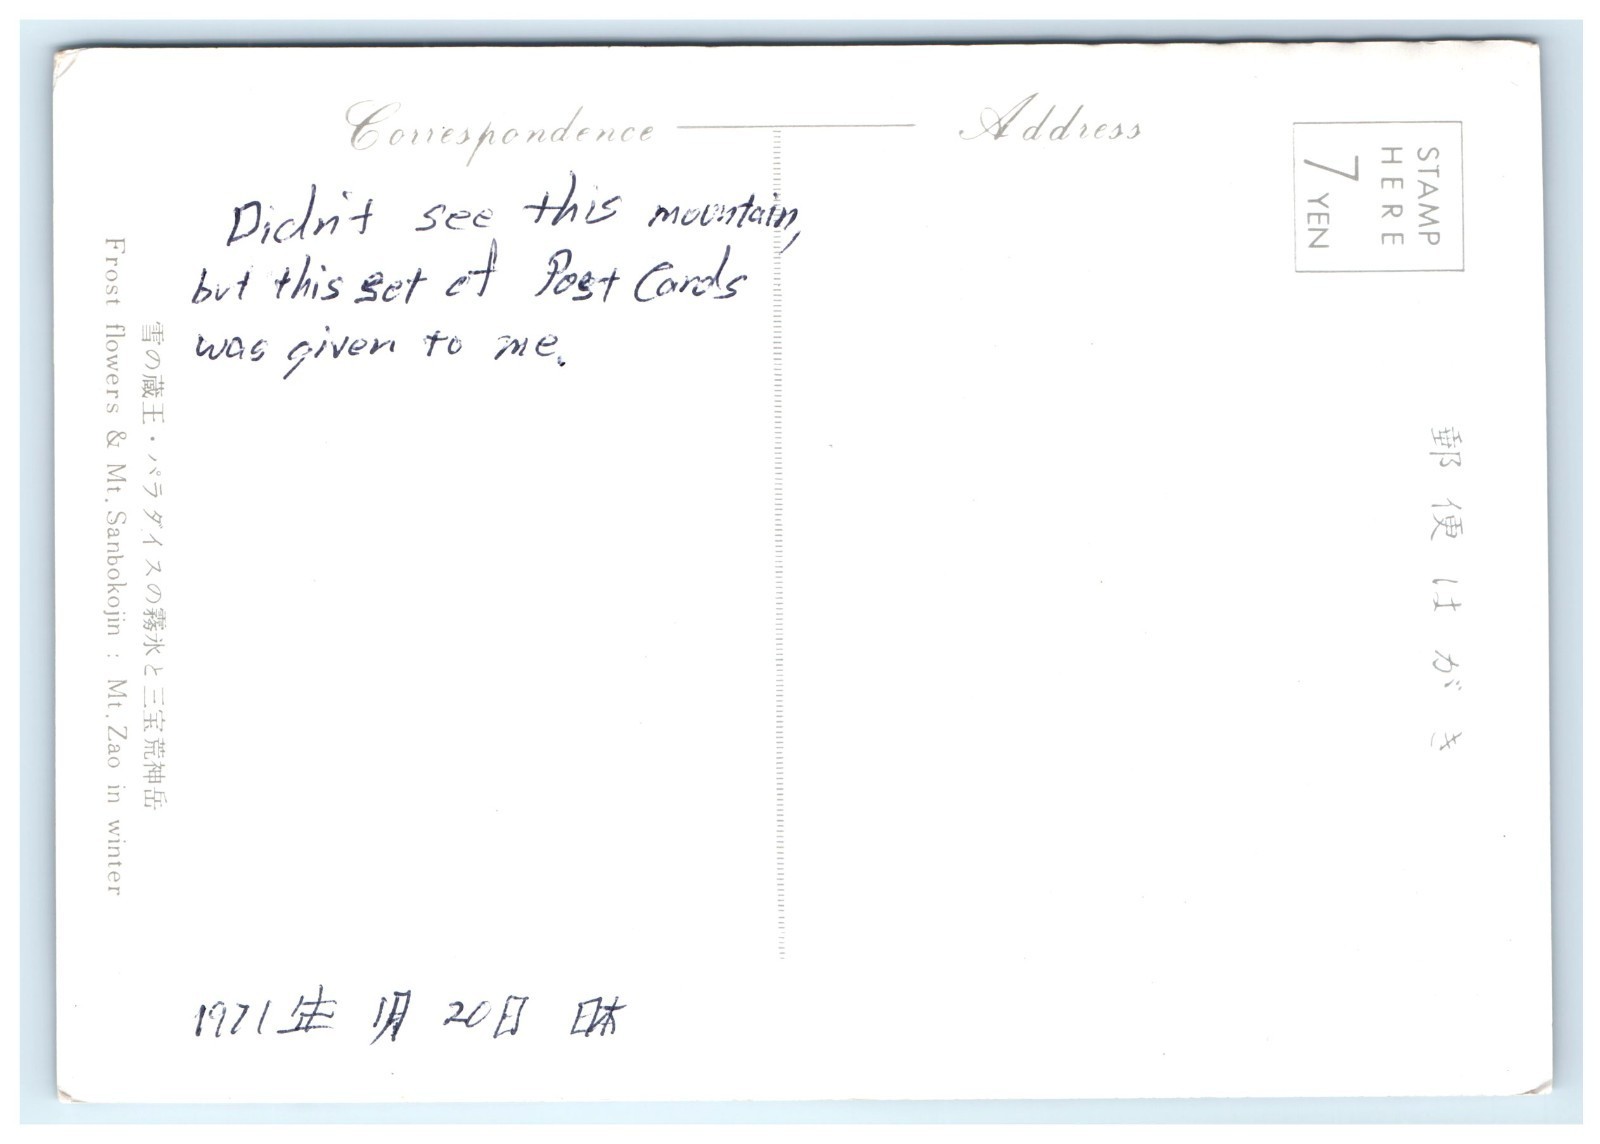 Correspondence
Address
STAMP
HERE
7 YEN
Didn't see this mountain,
but this set of Post Cards
was given to me.
雪の蔵王・パラダイスの霧氷と三宝荒神岳
Frost flowers & Mt. Sanbokojin : Mt. Zao in winter
郵便はがき
1971年 1月 20日 日本